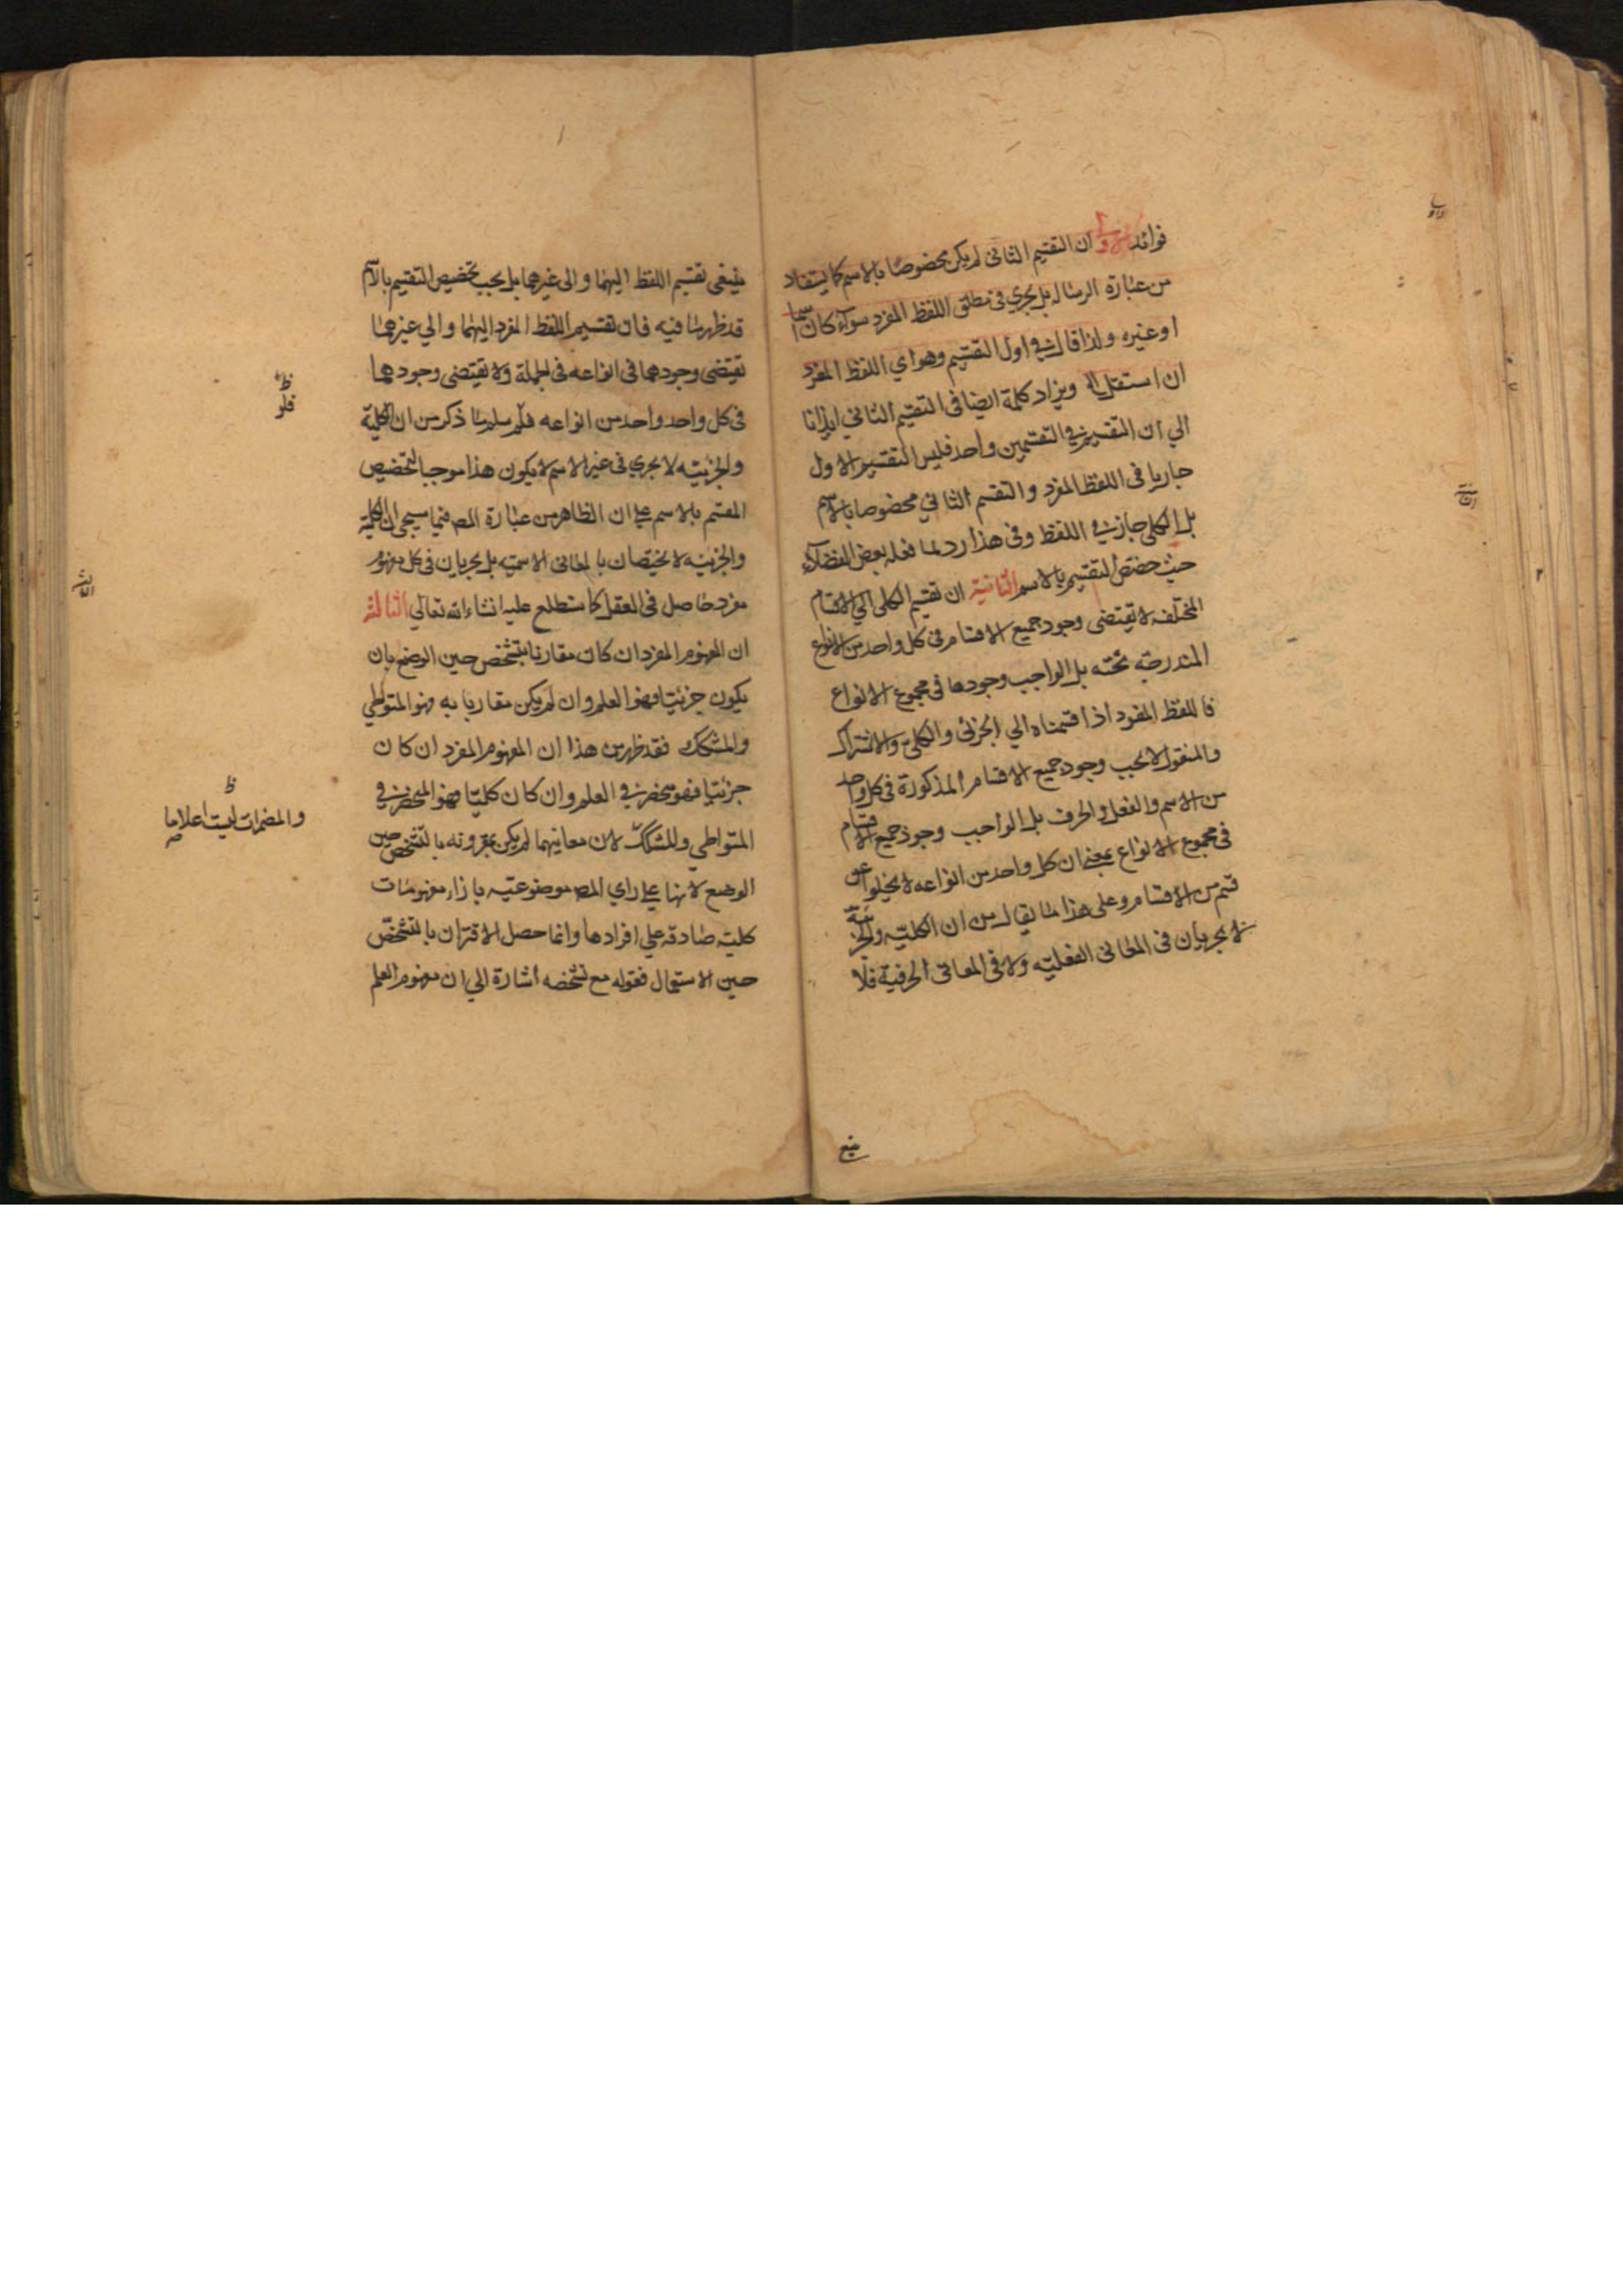 فوائد الاولى ان التقسيم الثانى لم يكن مخصوصا بالاسم كما يستفاد
من عبارة الرسالة بل يجري فى مطلق اللفظ المفرد سواء كان اسما
او غيره ولذا قال فى اول التقسيم وهو اي اللفظ المفرد
ان استقل الخ ويزاد كلمة ايضا فى التقسيم الثاني ايذانا
الي ان المقسم فى التقسيمين واحد فليس التقسيم الاول
جاريا فى اللفظ المفرد والتقسيم الثاني مخصوصا بالاسم
بل الكلى جاز فى اللفظ وفى هذا رد لما فعله بعض الفضلاء
حيث خصص التقسيم بالاسم الثانية ان تقسيم الكلى الي الاقسام
المختلفه لا تقتضى وجود جميع الاقسام فى كل واحد من الانواع
المندرجه تحته بل الواجب وجودها فى مجموع الانواع
فاللفظ المفرد اذا قسمناه الي الجزئى والكلى والاشتراك
والمنقول لا يجب وجود جميع الاقسام المذكورة فى كل واحد
من الاسم والفعل والحرف بل الواجب وجود جميع الاقسام
فى مجموع الانواع بمعنى ان كل واحد من انواعه لا يخلوا عن
قسم من الاقسام وعلى هذا لما يقال من ان الكلية والجزئية
لا يجريان فى المعانى الفعلية ولا فى المعانى الحرفية فلا
ينبغى
ينبغى تقسيم اللفظ اليهما والى غيرهما بل يجب تخصيص التقسيم بالاسم
قد ظهر ما فيه فان تقسيم اللفظ المفرد اليهما والي غيرهما
تقتضى وجودهما فى انواعه فى الجملة ولا تقتضى وجودهما
فى كل واحد واحد من انواعه فلم سلم ما ذكر من ان الكلية
والجزئيه لا يجري فى غير الاسم لا يكون هذا موجبا لتخصيص
المقسم بالاسم علي ان الظاهر من عبارة المص فيما سيجى ان الكلية
والجزئيه لا يختصان بالمعانى الاسميه بل يجريان فى كل مفهوم
مفرد حاصل فى العقل كما ستطلع عليه انشاء الله تعالي الثالثة
ان المفهوم المفرد ان كان مقارنا بتشخص حين الوضع بان
يكون جزئيا فهو العلم وان لم يكن مقارنا به فهو المتواطي
والمشكك فقد ظهر من هذا ان المفهوم المفرد ان كان
جزئيا فهو منحصر فى العلم وان كان كليا فهو المنحصر فى
المتواطي والمشكك لان معانيهما لم يكن مقرونه بالتشخص حين
الوضع لانها علي راي المص موضوعة بازاء مفهومات
كلية صادقه علي افرادها وانما حصل الاقتران بالتشخص
حين الاستعمال فقوله مع تشخصه اشارة الي ان مفهوم العلم
ظ
فلو
ظ
والمضمرات ليست اعلاما